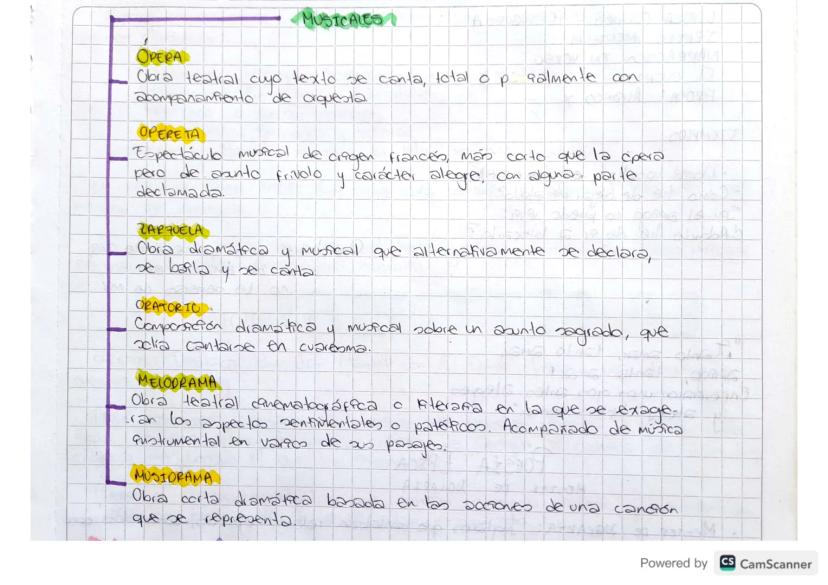 MUSICALES
ÓPERA
Obra teatral cuyo texto se canta, total o p cialmente con
acompañamiento de orquesta
OPERETA
Espectáculo musical de origen francés, más corto que la ópera
pero de asunto frívolo y carácter alegre, con alguna parte
declamada.
ZARZUELA
Obra dramática y musical que alternativamente se declara,
se baila y se canta.
ORATORIO
Composición dramática y musical sobre un asunto sagrado, que
solía cantarse en cuaresma.
MELODRAMA
Obra teatral cinematográfica o literaria en la que se exage-
ran los aspectos sentimentales o patéticos. Acompañado de música
instrumental en varios de sus pasajes.
MUSIDRAMA
Obra corta dramática basada en las acciones de una canción
que se representa.
Powered by CS CamScanner